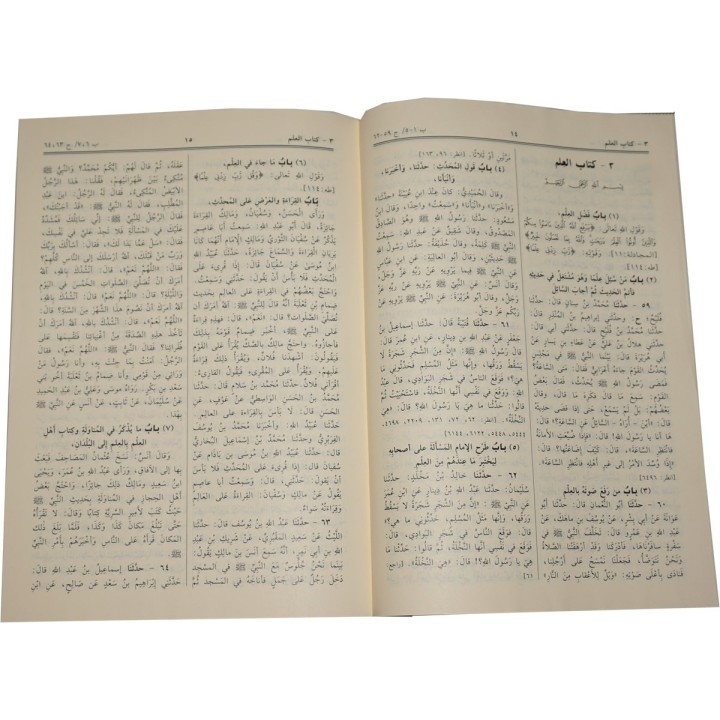 ٣ - كتاب العلم
١٤
ب ١-٥/ ح ٥٩-٦٢
٣ - كتاب العلم
بسم الله الرحمن الرحيم
(١) بابُ فَضْلِ العِلْمِ،
وَقَوْلِ اللهِ تَعَالَى: ﴿يَرْفَعِ اللَّهُ الَّذِينَ آمَنُوا مِنْكُمْ
وَالَّذِينَ أُوتُوا الْعِلْمَ دَرَجَاتٍ وَاللَّهُ بِمَا تَعْمَلُونَ خَبِيرٌ﴾
[المجادلة: ١١] وَقَوْلِهِ: ﴿رَبِّ زِدْنِي عِلْمًا﴾
[طه: ١١٤].
(٢) بابُ مَنْ سُئِلَ عِلْمًا وَهُوَ مُشْتَغِلٌ فِي حَدِيثِهِ
فَأَتَمَّ الْحَدِيثَ ثُمَّ أَجَابَ السَّائِلَ
٥٩ - حَدَّثَنَا مُحَمَّدُ بْنُ سِنَانٍ قَالَ: حَدَّثَنَا
فُلَيْحٌ؛ ح: وَحَدَّثَنِي إِبْرَاهِيمُ بْنُ الْمُنْذِرِ قَالَ:
حَدَّثَنَا مُحَمَّدُ بْنُ فُلَيْحٍ قَالَ: حَدَّثَنَا أَبِي قَالَ:
حَدَّثَنِي هِلَالُ بْنُ عَلِيٍّ عَنْ عَطَاءِ بْنِ يَسَارٍ عَنْ
أَبِي هُرَيْرَةَ قَالَ: بَيْنَمَا النَّبِيُّ ﷺ فِي مَجْلِسٍ
يُحَدِّثُ الْقَوْمَ جَاءَهُ أَعْرَابِيٌّ فَقَالَ: مَتَى السَّاعَةُ؟
فَمَضَى رَسُولُ اللهِ ﷺ يُحَدِّثُ، فَقَالَ بَعْضُ
الْقَوْمِ: سَمِعَ مَا قَالَ فَكَرِهَ مَا قَالَ، وَقَالَ
بَعْضُهُمْ: بَلْ لَمْ يَسْمَعْ، حَتَّى إِذَا قَضَى حَدِيثَهُ
قَالَ: «أَيْنَ - أُرَاهُ - السَّائِلُ عَنِ السَّاعَةِ؟» قَالَ:
هَا أَنَا يَا رَسُولَ اللهِ! قَالَ: «فَإِذَا ضُيِّعَتِ الْأَمَانَةُ
فَانْتَظِرِ السَّاعَةَ»، قَالَ: كَيْفَ إِضَاعَتُهَا؟ قَالَ:
«إِذَا وُسِّدَ الْأَمْرُ إِلَى غَيْرِ أَهْلِهِ فَانْتَظِرِ السَّاعَةَ».
[انظر: ٦٤٩٦]
(٣) بابُ مَنْ رَفَعَ صَوْتَهُ بِالْعِلْمِ
٦٠ - حَدَّثَنَا أَبُو النُّعْمَانِ قَالَ: حَدَّثَنَا أَبُو
عَوَانَةَ عَنْ أَبِي بِشْرٍ، عَنْ يُوسُفَ بْنِ مَاهَكَ، عَنْ
عَبْدِ اللهِ بْنِ عَمْرٍو قَالَ: تَخَلَّفَ النَّبِيُّ ﷺ فِي
سَفْرَةٍ سَافَرْنَاهَا، فَأَدْرَكَنَا وَقَدْ أَرْهَقَتْنَا الصَّلَاةُ
وَنَحْنُ نَتَوَضَّأُ، فَجَعَلْنَا نَمْسَحُ عَلَى أَرْجُلِنَا،
فَنَادَى بِأَعْلَى صَوْتِهِ: «وَيْلٌ لِلْأَعْقَابِ مِنَ النَّارِ»
مَرَّتَيْنِ أَوْ ثَلَاثًا. [انظر: ٩٦، ١٦٣]
(٤) بابُ قَوْلِ الْمُحَدِّثِ: حَدَّثَنَا، وَأَخْبَرَنَا،
وَأَنْبَأَنَا،
وَقَالَ الْحُمَيْدِيُّ: كَانَ عِنْدَ ابْنِ عُيَيْنَةَ «حَدَّثَنَا»
و«أَخْبَرَنَا» و«أَنْبَأَنَا» و«سَمِعْتُ» وَاحِدًا، وَقَالَ ابْنُ
مَسْعُودٍ: حَدَّثَنَا رَسُولُ اللهِ ﷺ وَهُوَ الصَّادِقُ
الْمَصْدُوقُ، وَقَالَ شَقِيقٌ عَنْ عَبْدِ اللهِ: سَمِعْتُ
النَّبِيَّ ﷺ كَلِمَةً، وَقَالَ حُذَيْفَةُ: حَدَّثَنَا رَسُولُ اللهِ ﷺ
حَدِيثَيْنِ، وَقَالَ أَبُو الْعَالِيَةِ عَنِ ابْنِ عَبَّاسٍ، عَنِ
النَّبِيِّ ﷺ فِيمَا يَرْوِيهِ عَنْ رَبِّهِ عَزَّ وَجَلَّ،
وَقَالَ أَنَسٌ عَنِ النَّبِيِّ ﷺ يَرْوِيهِ عَنْ رَبِّهِ عَزَّ
وَجَلَّ، وَقَالَ أَبُو هُرَيْرَةَ: عَنِ النَّبِيِّ ﷺ يَرْوِيهِ عَنْ
رَبِّكُمْ عَزَّ وَجَلَّ.
٦١ - حَدَّثَنَا قُتَيْبَةُ قَالَ: حَدَّثَنَا إِسْمَاعِيلُ بْنُ
جَعْفَرٍ عَنْ عَبْدِ اللهِ بْنِ دِينَارٍ، عَنِ ابْنِ عُمَرَ قَالَ:
قَالَ رَسُولُ اللهِ ﷺ: «إِنَّ مِنَ الشَّجَرِ شَجَرَةً لَا
يَسْقُطُ وَرَقُهَا، وَإِنَّهَا مَثَلُ الْمُسْلِمِ، فَحَدِّثُونِي مَا
هِيَ؟» فَوَقَعَ النَّاسُ فِي شَجَرِ الْبَوَادِي، قَالَ عَبْدُ
اللهِ: وَوَقَعَ فِي نَفْسِي أَنَّهَا النَّخْلَةُ، فَاسْتَحْيَيْتُ ثُمَّ
قَالُوا: حَدِّثْنَا مَا هِيَ يَا رَسُولَ اللهِ؟ قَالَ: «هِيَ
النَّخْلَةُ». [انظر: ٦٢، ٧٢، ١٣١، ٢٢٠٩، ٤٦٩٨،
٥٤٤٤، ٥٤٤٨، ٦١٢٢، ٦١٤٤]
(٥) بابُ طَرْحِ الْإِمَامِ الْمَسْأَلَةَ عَلَى أَصْحَابِهِ
لِيَخْتَبِرَ مَا عِنْدَهُمْ مِنَ الْعِلْمِ
٦٢ - حَدَّثَنَا خَالِدُ بْنُ مَخْلَدٍ قَالَ: حَدَّثَنَا
سُلَيْمَانُ: حَدَّثَنَا عَبْدُ اللهِ بْنُ دِينَارٍ عَنِ ابْنِ عُمَرَ
عَنِ النَّبِيِّ ﷺ قَالَ: «إِنَّ مِنَ الشَّجَرِ شَجَرَةً لَا يَسْقُطُ
وَرَقُهَا، وَإِنَّهَا مَثَلُ الْمُسْلِمِ، حَدِّثُونِي مَا هِيَ؟»
قَالَ: فَوَقَعَ النَّاسُ فِي شَجَرِ الْبَوَادِي، قَالَ عَبْدُ
اللهِ: فَوَقَعَ فِي نَفْسِي أَنَّهَا النَّخْلَةُ، ثُمَّ قَالُوا: حَدِّثْنَا
مَا هِيَ يَا رَسُولَ اللهِ؟! قَالَ: «هِيَ النَّخْلَةُ». [راجع:
٦١]
٣ - كتاب العلم
١٥
ب ٦-٧/ ح ٦٣-٦٤
(٦) بابُ مَا جَاءَ فِي الْعِلْمِ،
وَقَوْلِ اللهِ تَعَالَى: ﴿وَقُلْ رَبِّ زِدْنِي عِلْمًا﴾
[طه: ١١٤]
بَابُ الْقِرَاءَةِ وَالْعَرْضِ عَلَى الْمُحَدِّثِ،
وَرَأَى الْحَسَنُ، وَسُفْيَانُ، وَمَالِكٌ الْقِرَاءَةَ
جَائِزَةً، قَالَ أَبُو عَبْدِ اللهِ: سَمِعْتُ أَبَا عَاصِمٍ
يَذْكُرُ عَنْ سُفْيَانَ الثَّوْرِيِّ وَمَالِكٍ الْإِمَامِ أَنَّهُمَا كَانَا
يَرَيَانِ الْقِرَاءَةَ وَالسَّمَاعَ جَائِزَةً. حَدَّثَنَا عُبَيْدُ اللهِ
ابْنُ مُوسَى عَنْ سُفْيَانَ قَالَ: إِذَا قُرِئَ عَلَى
الْمُحَدِّثِ فَلَا بَأْسَ أَنْ يَقُولَ: حَدَّثَنِي وَسَمِعْتُ.
وَاحْتَجَّ بَعْضُهُمْ فِي الْقِرَاءَةِ عَلَى الْعَالِمِ بِحَدِيثِ
ضِمَامِ بْنِ ثَعْلَبَةَ أَنَّهُ قَالَ لِلنَّبِيِّ ﷺ: آللهُ أَمَرَكَ أَنْ
تُصَلِّيَ الصَّلَوَاتِ؟ قَالَ: «نَعَمْ»، قَالَ: فَهَذِهِ قِرَاءَةٌ
عَلَى النَّبِيِّ ﷺ، أَخْبَرَ ضِمَامٌ قَوْمَهُ بِذَلِكَ
فَأَجَازُوهُ. وَاحْتَجَّ مَالِكٌ بِالصَّكِّ يُقْرَأُ عَلَى الْقَوْمِ
فَيَقُولُونَ: أَشْهَدَنَا فُلَانٌ، وَيُقْرَأُ ذَلِكَ قِرَاءَةً
عَلَيْهِمْ، وَيُقْرَأُ عَلَى الْمُقْرِئِ، فَيَقُولُ الْقَارِئُ:
أَقْرَأَنِي فُلَانٌ. حَدَّثَنَا مُحَمَّدُ بْنُ سَلَامٍ قَالَ:
حَدَّثَنَا مُحَمَّدُ بْنُ الْحَسَنِ الْوَاسِطِيُّ عَنْ عَوْفٍ، عَنِ
الْحَسَنِ قَالَ: لَا بَأْسَ بِالْقِرَاءَةِ عَلَى الْعَالِمِ.
وَأَخْبَرَنَا مُحَمَّدُ بْنُ يُوسُفَ
الْفِرَبْرِيُّ وَحَدَّثَنَا مُحَمَّدُ بْنُ إِسْمَاعِيلَ الْبُخَارِيُّ
قَالَ: حَدَّثَنَا عُبَيْدُ اللهِ بْنُ مُوسَى بْنِ بَاذَامَ عَنْ
سُفْيَانَ قَالَ: إِذَا قُرِئَ عَلَى الْمُحَدِّثِ فَلَا بَأْسَ أَنْ
يَقُولَ: حَدَّثَنِي، قَالَ: وَسَمِعْتُ أَبَا عَاصِمٍ
يَقُولُ عَنْ مَالِكٍ وَسُفْيَانَ: الْقِرَاءَةُ عَلَى الْعَالِمِ
وَقِرَاءَتُهُ سَوَاءٌ.
٦٣ - حَدَّثَنَا عَبْدُ اللهِ بْنُ يُوسُفَ قَالَ: حَدَّثَنَا
اللَّيْثُ عَنْ سَعِيدٍ الْمَقْبُرِيِّ، عَنْ شَرِيكِ بْنِ عَبْدِ
اللهِ بْنِ أَبِي نَمِرٍ، أَنَّهُ سَمِعَ أَنَسَ بْنَ مَالِكٍ يَقُولُ:
بَيْنَمَا نَحْنُ جُلُوسٌ مَعَ النَّبِيِّ ﷺ فِي الْمَسْجِدِ
دَخَلَ رَجُلٌ عَلَى جَمَلٍ فَأَنَاخَهُ فِي الْمَسْجِدِ ثُمَّ
عَقَلَهُ، ثُمَّ قَالَ لَهُمْ: أَيُّكُمْ مُحَمَّدٌ؟ وَالنَّبِيُّ ﷺ
مُتَّكِئٌ بَيْنَ ظَهْرَانَيْهِمْ، فَقُلْنَا: هَذَا الرَّجُلُ
الْأَبْيَضُ الْمُتَّكِئُ، فَقَالَ لَهُ الرَّجُلُ: ابْنَ عَبْدِ
الْمُطَّلِبِ، فَقَالَ لَهُ النَّبِيُّ ﷺ: «قَدْ أَجَبْتُكَ»،
فَقَالَ الرَّجُلُ لِلنَّبِيِّ ﷺ: إِنِّي سَائِلُكَ فَمُشَدِّدٌ
عَلَيْكَ فِي الْمَسْأَلَةِ فَلَا تَجِدْ عَلَيَّ فِي نَفْسِكَ،
فَقَالَ: «سَلْ عَمَّا بَدَا لَكَ»، فَقَالَ: أَسْأَلُكَ بِرَبِّكَ
وَرَبِّ مَنْ قَبْلَكَ، آللهُ أَرْسَلَكَ إِلَى النَّاسِ كُلِّهِمْ؟
فَقَالَ: «اللَّهُمَّ نَعَمْ»، قَالَ: أَنْشُدُكَ بِاللهِ، آللهُ
أَمَرَكَ أَنْ تُصَلِّيَ الصَّلَوَاتِ الْخَمْسَ فِي الْيَوْمِ
وَاللَّيْلَةِ؟ قَالَ: «اللَّهُمَّ نَعَمْ»، قَالَ: أَنْشُدُكَ بِاللهِ، آللهُ
أَمَرَكَ أَنْ تَصُومَ هَذَا الشَّهْرَ مِنَ السَّنَةِ؟ قَالَ:
«اللَّهُمَّ نَعَمْ»، قَالَ: أَنْشُدُكَ بِاللهِ، آللهُ أَمَرَكَ أَنْ
تَأْخُذَ هَذِهِ الصَّدَقَةَ مِنْ أَغْنِيَائِنَا فَتَقْسِمَهَا عَلَى
فُقَرَائِنَا؟ فَقَالَ النَّبِيُّ ﷺ: «اللَّهُمَّ نَعَمْ»، فَقَالَ
الرَّجُلُ: آمَنْتُ بِمَا جِئْتَ بِهِ، وَأَنَا رَسُولُ مَنْ
وَرَائِي مِنْ قَوْمِي وَأَنَا ضِمَامُ بْنُ ثَعْلَبَةَ أَخُو بَنِي
سَعْدِ بْنِ بَكْرٍ. رَوَاهُ مُوسَى وَعَلِيُّ بْنُ عَبْدِ الْحَمِيدِ
عَنْ سُلَيْمَانَ، عَنْ ثَابِتٍ، عَنْ أَنَسٍ عَنِ النَّبِيِّ ﷺ
بِهَذَا.
(٧) بابُ مَا يُذْكَرُ فِي الْمُنَاوَلَةِ وَكِتَابِ أَهْلِ
الْعِلْمِ بِالْعِلْمِ إِلَى الْبُلْدَانِ،
وَقَالَ أَنَسٌ: نَسَخَ عُثْمَانُ الْمَصَاحِفَ فَبَعَثَ
بِهَا إِلَى الْآفَاقِ، وَرَأَى عَبْدُ اللهِ بْنُ عُمَرَ، وَيَحْيَى
ابْنُ سَعِيدٍ، وَمَالِكٌ ذَلِكَ جَائِزًا، وَاحْتَجَّ بَعْضُ
أَهْلِ الْحِجَازِ فِي الْمُنَاوَلَةِ بِحَدِيثِ النَّبِيِّ ﷺ
حَيْثُ كَتَبَ لِأَمِيرِ السَّرِيَّةِ كِتَابًا وَقَالَ: لَا تَقْرَأْهُ
حَتَّى تَبْلُغَ مَكَانَ كَذَا وَكَذَا، فَلَمَّا بَلَغَ ذَلِكَ
الْمَكَانَ قَرَأَهُ عَلَى النَّاسِ وَأَخْبَرَهُمْ بِأَمْرِ النَّبِيِّ
ﷺ.
٦٤ - حَدَّثَنَا إِسْمَاعِيلُ بْنُ عَبْدِ اللهِ قَالَ:
حَدَّثَنِي إِبْرَاهِيمُ بْنُ سَعْدٍ عَنْ صَالِحٍ، عَنِ ابْنِ